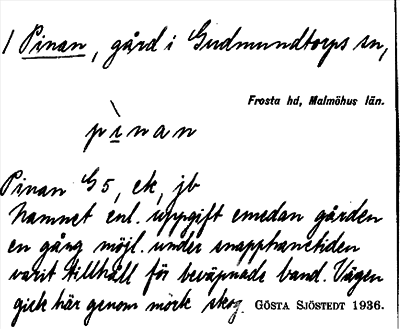 1 Pinan, gård i Gudmundtorps sn,
Frosta hd, Malmöhus län.
pìnan
Pinan G5, ek, jb
Namnet enl. uppgift emedan gården
en gång möjl. under snapphanetiden
varit tillhåll för beväpnade band. Vägen
gick här genom mörk skog. GÖSTA SJÖSTEDT 1936.